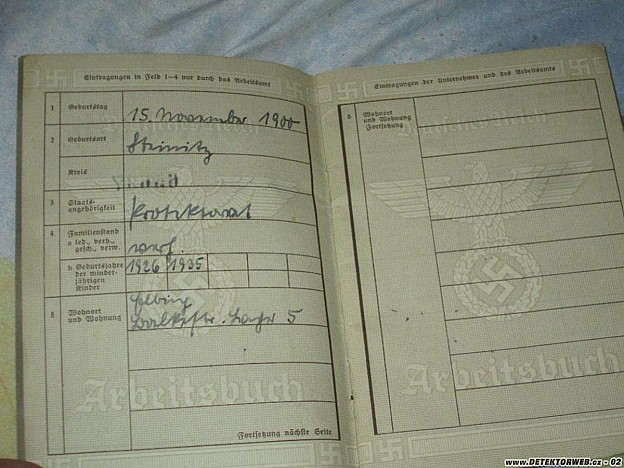 Eintragungen in Feld 1–4 nur durch das Arbeitsamt
1 Geburtstag 15. November 1900
2 Geburtsort Steinitz
Kreis
3 Staats-
angehörigkeit Protektorat
4 Familienstand
a led., verh.,
gesch., verw. verh.
b Geburtsjahre
der minder-
jährigen
Kinder 1926 1935
5 Wohnort
und Wohnung Elbing
Lager 5
Arbeitsbuch
Fortsetzung nächste Seite
Eintragungen der Unternehmer und des Arbeitsamts
5 Wohnort
und Wohnung
Fortsetzung
Deutsches Reich
Arbeitsbuch
www.DETEKTORWEB.cz - 02